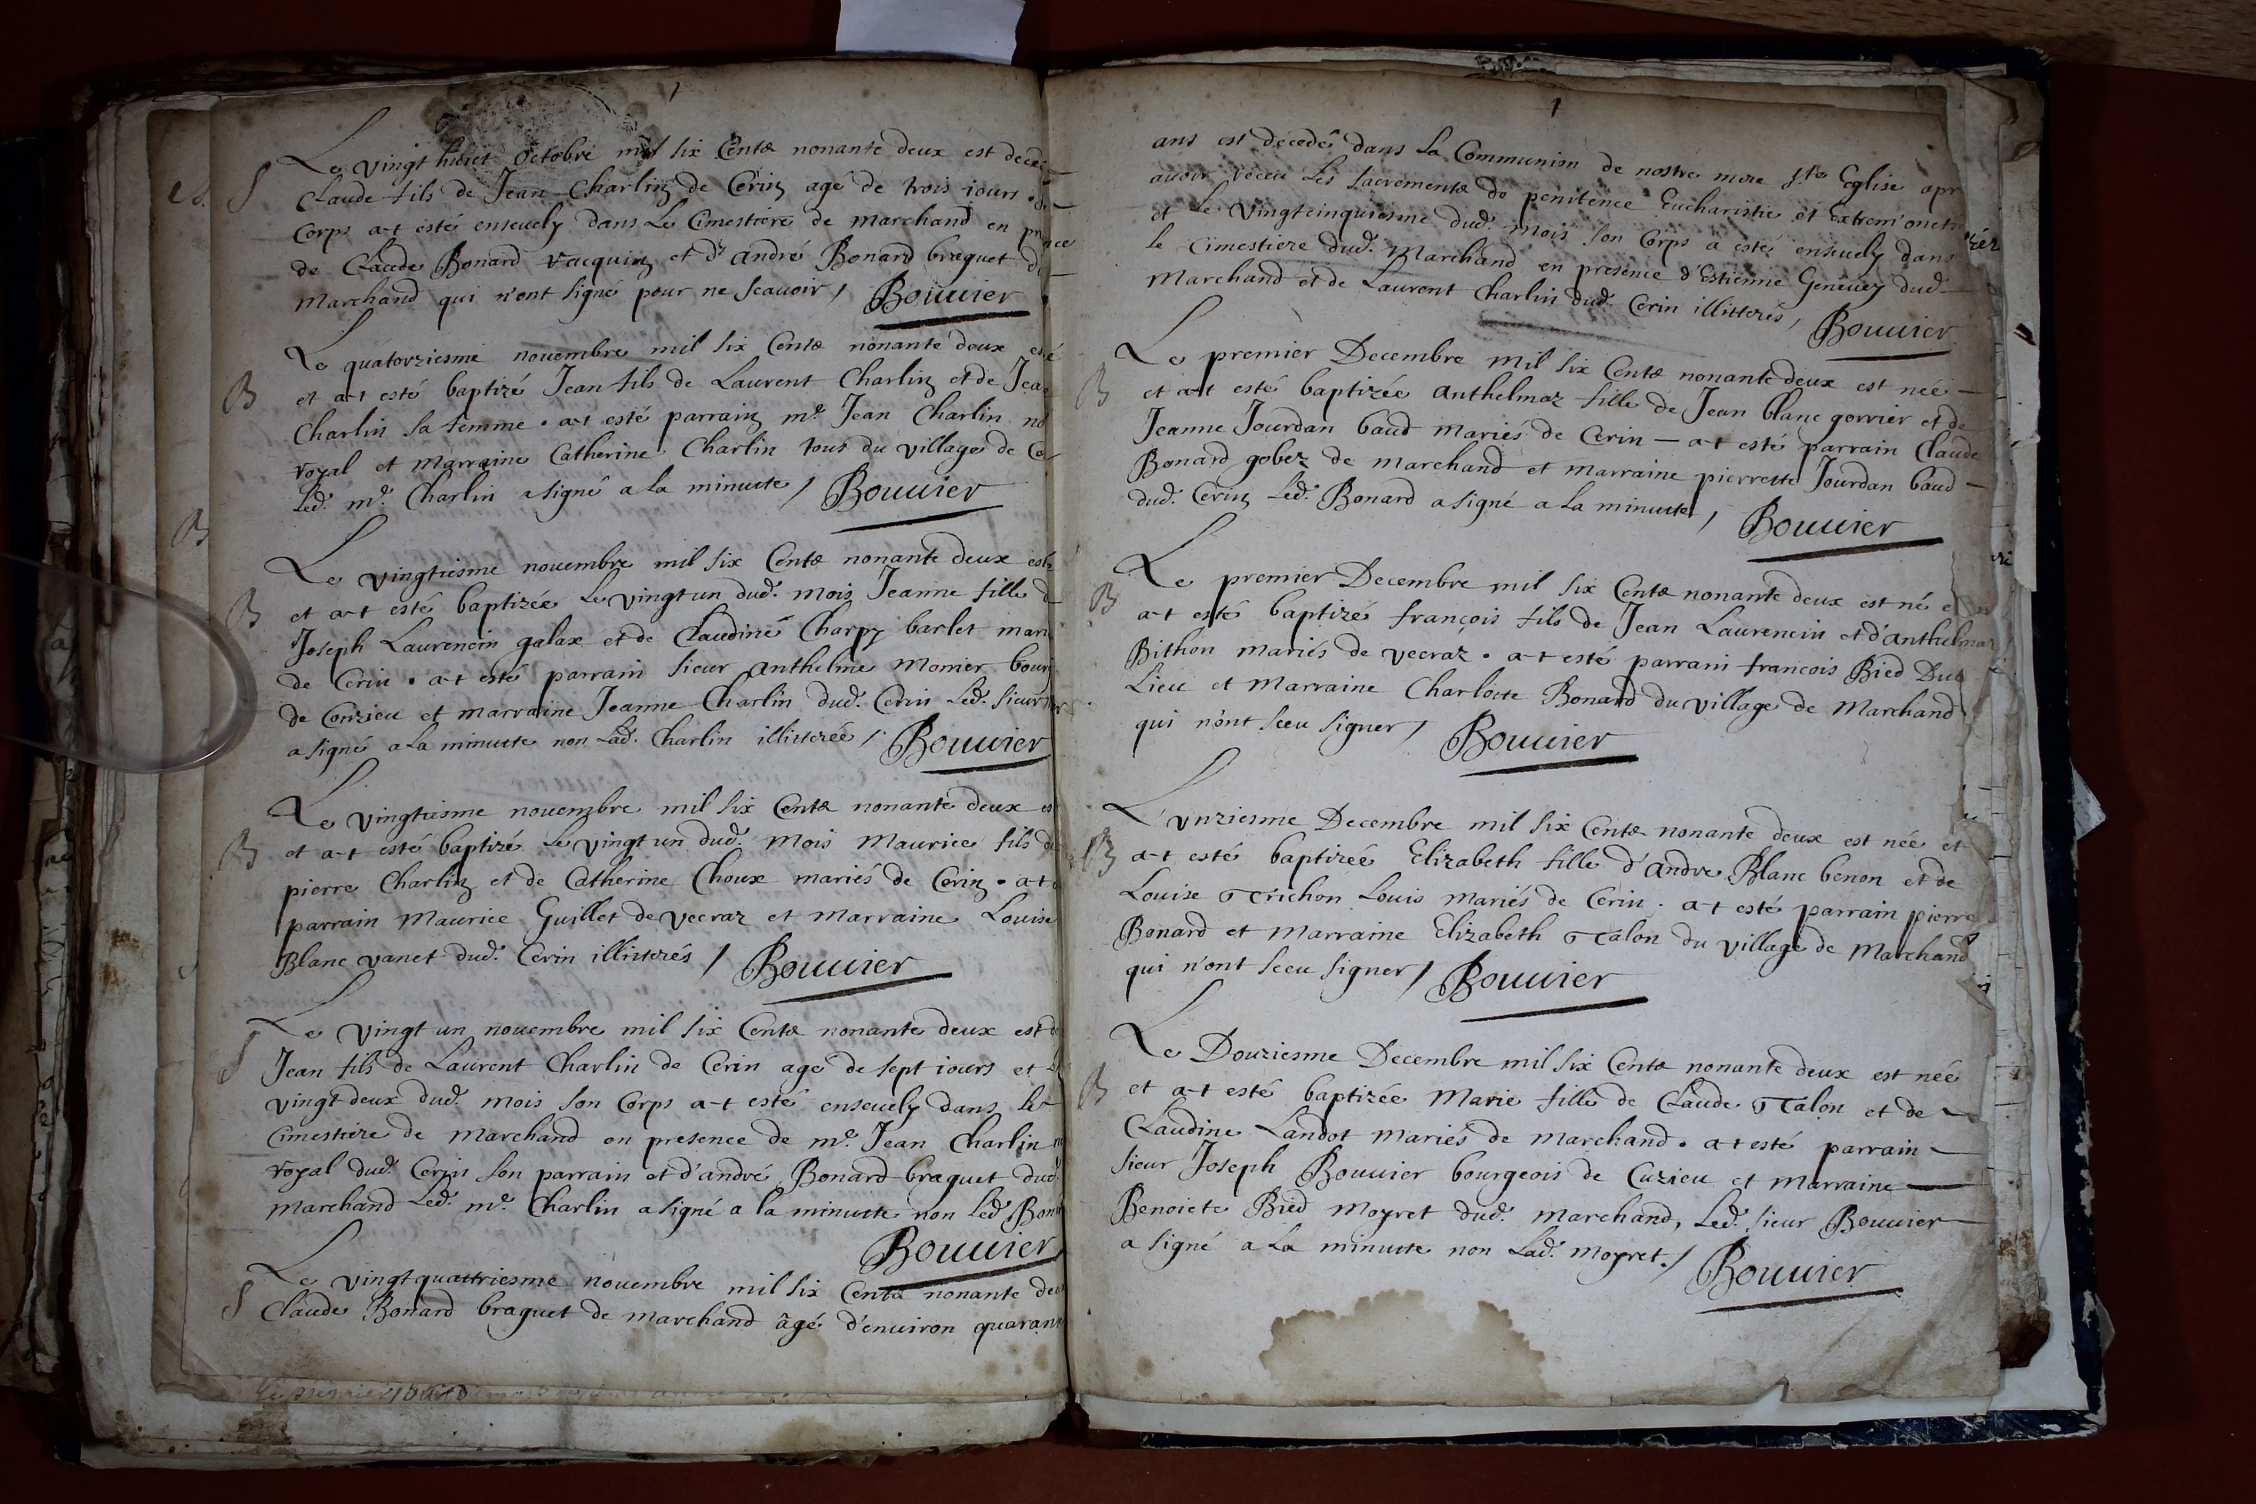 S
Le vingt huict octobre mil six Cents nonante deux est deced
Claude fils de Jean Charlin de Cerin agé de trois iours
Corps a-t esté enseuely dans Le Cimestiere de Marchand en
de Claude Bonard vacquin et d'andré Bonard braquet
Marchand qui n'ont signé pour ne scauoir / Bouuier
B
Le quatorziesme nouembre mil six Cents nonante deux
et a-t esté baptizé Jean fils de Laurent Charlin et de
Charlin sa femme . a-t esté parrain me. Jean Charlin no
royal et Marraine Catherine Charlin tous du village de
Led. me. Charlin a signé a la minutte / Bouuier
B
B
Le vingtiesme nouembre mil six Cents nonante deux est
et a-t esté baptizée Le vingt un dud. mois Jeanne fille
Joseph Laurencin galax et de Claudine Charpy barlet mari
de Cerin . a-t esté parrain sieur anthelme Monier bour
de Conzieu et marraine Jeanne Charlin dud. Cerin Led. sieur
a signé a la minutte non Lad. Charlin illitterée / Bouuier
B
Le vingtiesme nouembre mil six Cents nonante deux
et a-t esté baptizé Le vingt un dud. Mois Maurice fils
pierre Charlin et de Catherine Choux mariés de Cerin . a-t
parrain Maurice Guillet de vecraz et Marraine Louise
Blanc vanet dud. Cerin illitterés / Bouuier
S
Le vingt un nouembre mil six Cents nonante deux est
Jean fils de Laurent Charlin de Cerin age de sept iours et
vingt deux dud. mois son Corps a-t esté enseuely dans Le
Cimestiere de Marchand en presence de me. Jean Charlin
royal dud. Cerin son parrain et d'andré Bonard braquet dud.
Marchand Led. me. Charlin a signé a la minutte non Led. Bon
Bouuier
S
Le vingtquattriesme nouembre mil six Cents nonante
Claude Bonard braquet de marchand agé d'enuiron
ans est decedé dans La Communion de nostre mere ste Eglise
auoir receu Les sacrements de penitence Eucharistie et
et Le vingtcinquiesme dud. mois son Corps a esté enseuely dans
le Cimestiere dud. Marchand en presence d'Estienne Geneuey dud.
Marchand et de Laurent Charlin dud. Cerin illitterés / Bouuier
B
Le premier Decembre mil six Cents nonante deux est née
et a-t esté baptizée anthelmaz fille de Jean blanc gorrier et de
Jeanne Jourdan baud mariés de Cerin - a-t esté parrain Claude
Bonard gobez de marchand et marraine pierrette Jourdan baud
dud. Cerin Led. Bonard a signé a la minutte / Bouuier
B
Le premier Decembre mil six Cents nonante deux est né
a-t esté baptizé françois fils de Jean Laurencin et d'anthelmaz
Bithon mariés de vecraz . a-t esté parrain françois Bied Du
Lieu et Marraine Charlotte Bonard du village de Marchand
qui n'ont sceu signer / Bouuier
B
L'vnziesme Decembre mil six Cents nonante deux est née et
a-t esté baptizée Elizabeth fille d'andre Blanc benon et de
Louise Trichon Louis mariés de Cerin . a-t esté parrain pierre
Bonard et Marraine Elizabeth Talon du village de Marchand
qui n'ont sceu signer / Bouuier
B
Le Douziesme Decembre mil six Cents nonante deux est née
et a-t esté baptizée Marie fille de Claude Talon et de
Claudine Landot mariés de marchand . a-t esté parrain
sieur Joseph Bouuier bourgeois de Cuzieu et Marraine
Benoiete Bied Moyret dud. Marchand, Led. sieur Bouuier
a signé a La minutte non Lad. moyret./ Bouuier